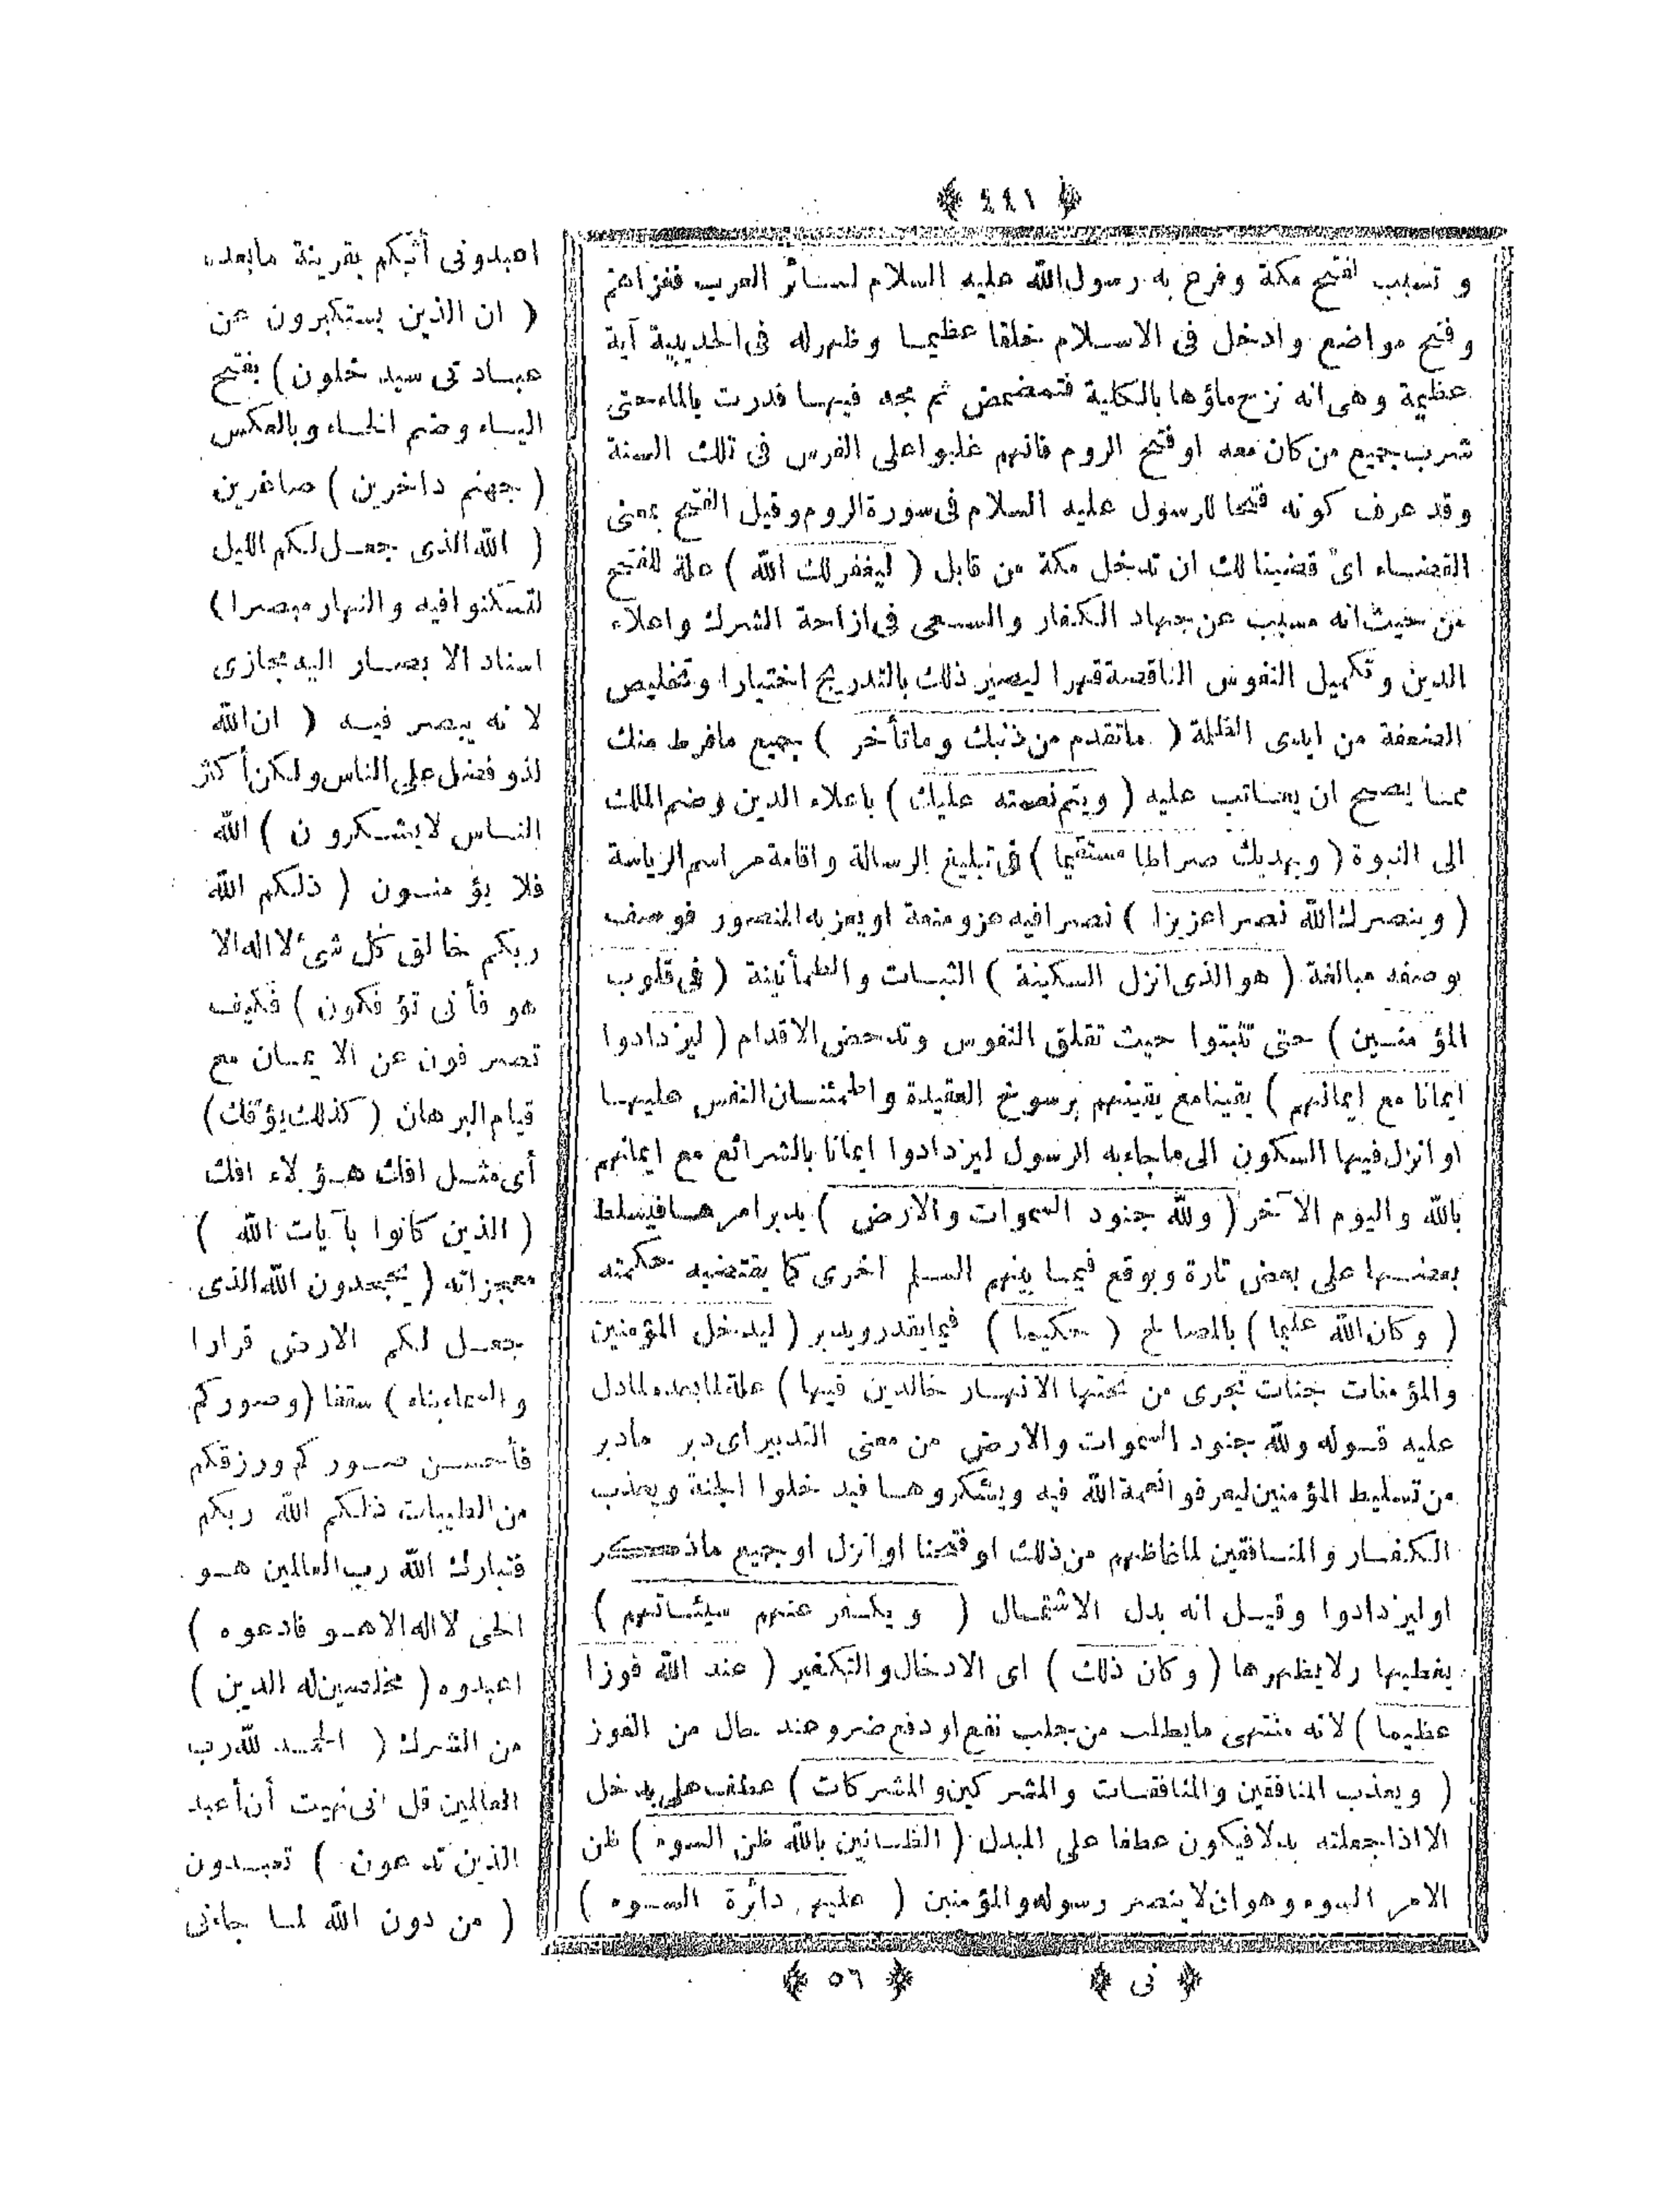 ﴿ ٤٤١ ﴾
و تسبب لفتح مكة وفرغ به رسول الله عليه السلام لسائر العرب فغزاهم
وفتح مواضع وادخل فى الاسلام خلقا عظيما وظهر له فى الحديبية آية
عظيمة وهى انه نزح ماؤها بالكلية فتمضمض ثم مجه فيها فدرت بالماء حتى
شرب جميع من كان معه او فتح الروم فانهم غلبوا على الفرس فى تلك السنة
وقد عرف كونه فتحا للرسول عليه السلام فى سورة الروم وقيل الفتح بمعنى
القضاء اى قضينا لك ان تدخل مكة من قابل ( ليغفر لك الله ) علة للفتح
من حيث انه مسبب عن جهاد الكفار والسعى فى ازاحة الشرك واعلاء
الدين وتكميل النفوس الناقصة قهرا ليصير ذلك بالتدريج اختيارا وتخليص
الضعفة من ايدى الظلمة ( ماتقدم من ذنبك وماتأخر ) جميع مافرط منك
مما يصح ان يعاتب عليه ( ويتم نعمته عليك ) باعلاء الدين وضم الملك
الى النبوة ( ويهديك صراطا مستقيما ) فى تبليغ الرسالة واقامة مراسم الرياسة
( وينصرك الله نصرا عزيزا ) نصرا فيه عز ومنعة او يعز به المنصور فوصف
بوصفه مبالغة ( هو الذى انزل السكينة ) الثبات والطمأنينة ( فى قلوب
المؤمنين ) حتى تثبتوا حيث تقلق النفوس وتدحض الاقدام ( ليزدادوا
ايمانا مع ايمانهم ) يقينا مع يقينهم برسوخ العقيدة واطمئنان النفس عليها
او انزل فيها السكون الى ماجاء به الرسول ليزدادوا ايمانا بالشرائع مع ايمانهم
بالله واليوم الآخر ( ولله جنود السموات والارض ) يدبر امرها فيسلط
بعضها على بعض تارة ويوقع فيما بينهم السلم اخرى كما يقتضيه حكمته
( وكان الله عليما ) بالمصالح ( حكيما ) فيما يقدر ويدبر ( ليدخل المؤمنين
والمؤمنات جنات تجرى من تحتها الانهار خالدين فيها ) علة لما بعده لما دل
عليه قوله ولله جنود السموات والارض من معنى التدبير اى دبر مادبر
من تسليط المؤمنين ليعرفوا نعمة الله فيه ويشكروها فيدخلوا الجنة ويعذب
الكفار والمنافقين لما غاظهم من ذلك او فتحنا او انزل او جميع ماذكر
او ليزدادوا وقيل انه بدل الاشتمال ( ويكفر عنهم سيئاتهم )
يغطيها ولا يظهرها ( وكان ذلك ) اى الادخال والتكفير ( عند الله فوزا
عظيما ) لانه منتهى مايطلب من جلب نفع او دفع ضر وعند حال من الفوز
( ويعذب المنافقين والمنافقات والمشركين والمشركات ) عطف على يدخل
الا اذا جعلته بدلا فيكون عطفا على المبدل ( الظانين بالله ظن السوء ) ظن
الامر السوء وهو ان لا ينصر رسوله والمؤمنين ( عليهم دائرة السوء )
اعبدونى أثبكم بقرينة مابعده
( ان الذين يستكبرون عن
عبادتى سيدخلون ) بفتح
الياء وضم الخاء وبالعكس
( جهنم داخرين ) صاغرين
( الله الذى جعل لكم الليل
لتسكنوا فيه والنهار مبصرا )
اسناد الابصار اليه مجازى
لانه يبصر فيه ( ان الله
لذو فضل على الناس ولكن أكثر
الناس لايشكرون ) الله
فلا يؤمنون ( ذلكم الله
ربكم خالق كل شئ لا اله الا
هو فأنى تؤفكون ) فكيف
تصرفون عن الايمان مع
قيام البرهان ( كذلك يؤفك )
أى مثل افك هؤلاء افك
( الذين كانوا بآيات الله )
معجزاته ( يجحدون الله الذى
جعل لكم الارض قرارا
والسماء بناء ) سقفا ( وصوركم
فأحسن صوركم ورزقكم
من الطيبات ذلكم الله ربكم
فتبارك الله رب العالمين هو
الحى لا اله الا هو فادعوه )
اعبدوه ( مخلصين له الدين )
من الشرك ( الحمد لله رب
العالمين قل انى نهيت أن أعبد
الذين تدعون ) تعبدون
( من دون الله لما جاءنى
﴿ نى ﴾ ﴿ ٥٦ ﴾